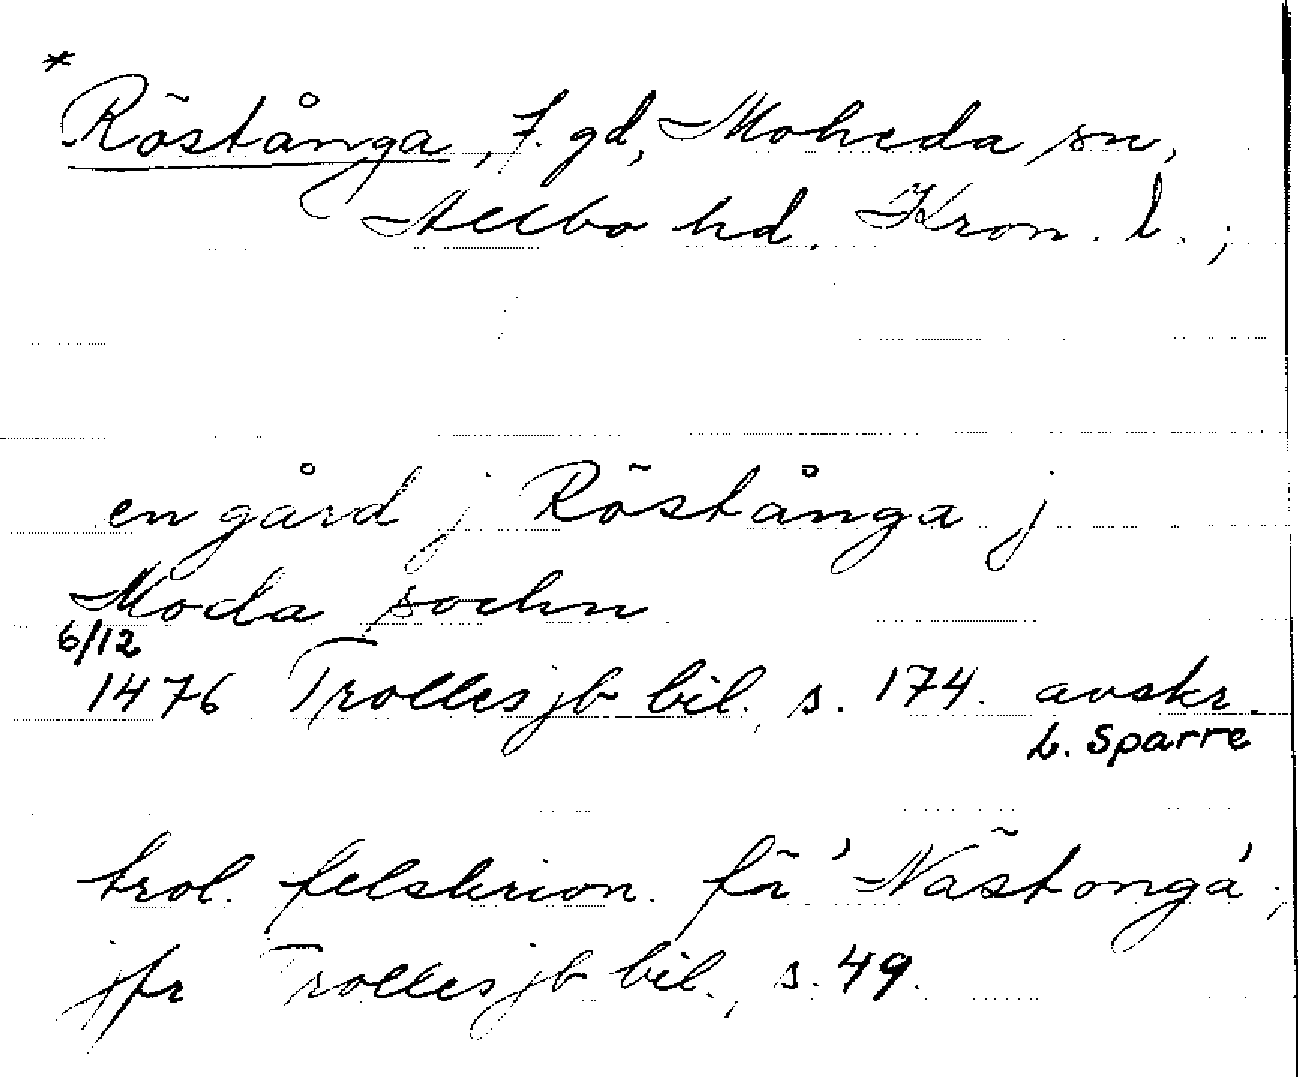 *
Röstånga, f. gd, Moheda sn,
Allbo hd. Kron. l.;
en gård j Röstånga j
Moda sochn
6/12
1476 Trollesjb bil., s. 174. avskr.
L. Sparre
trol. felskrivn. för 'Nästonga';
jfr Trollesjb bil., s. 49.